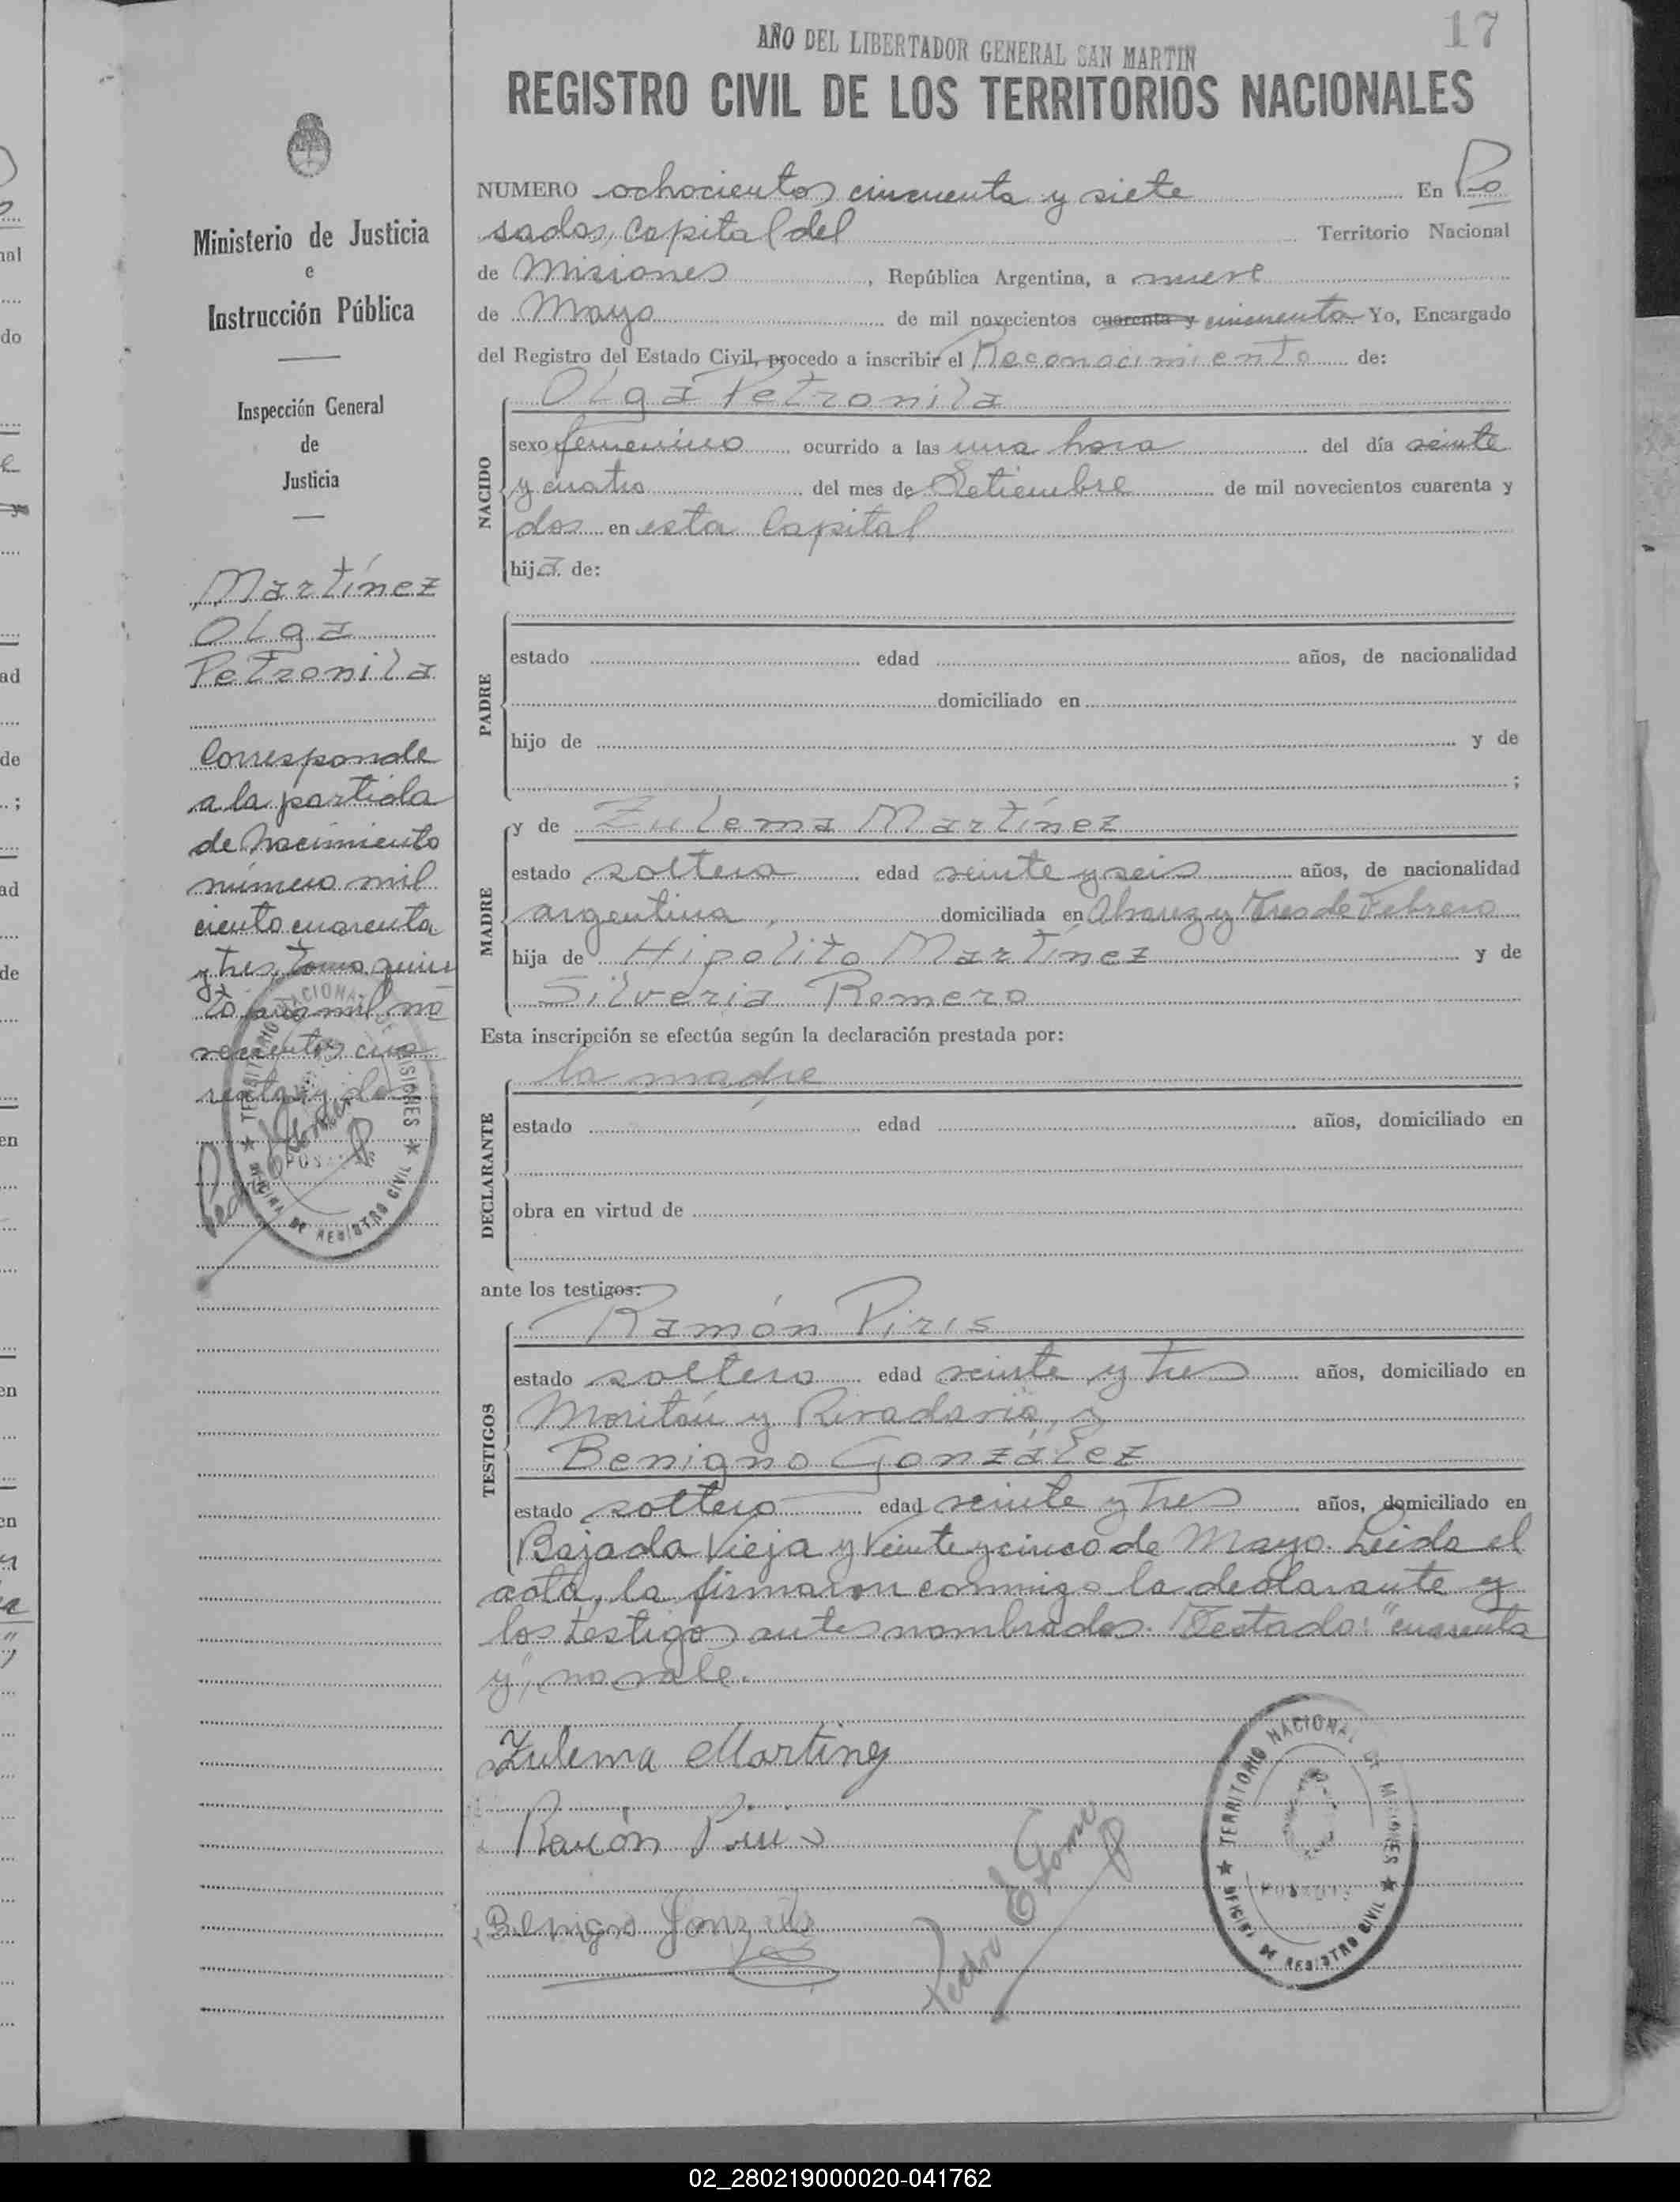 17
AÑO DEL LIBERTADOR GENERAL SAN MARTIN
REGISTRO CIVIL DE LOS TERRITORIOS NACIONALES
Ministerio de Justicia
e
Instrucción Pública
Inspección General
de
Justicia
Martínez
Olga
Petronila
Corresponde
a la partida
de Nacimiento
número mil
ciento cuarenta
y tres, tomo quin
to año mil no
vecientos cua
renta y dos
TERRITORIO NACIONAL DE MISIONES
POSADAS
OFICINA DE REGISTRO CIVIL
NUMERO ochocientos cincuenta y siete En Po
sadas, Capital del Territorio Nacional
de Misiones, República Argentina, a nueve
de Mayo de mil novecientos cuarenta y cincuenta Yo, Encargado
del Registro del Estado Civil, procedo a inscribir el Reconocimiento de:
Olga Petronila
NACIDO
sexo femenino ocurrido a las una hora del día veinte
y cuatro del mes de Setiembre de mil novecientos cuarenta y
dos en esta Capital
hija de:
PADRE
estado edad años, de nacionalidad
domiciliado en
hijo de y de
;
MADRE
y de Zulema Martínez
estado soltera edad veinte y seis años, de nacionalidad
argentina, domiciliada en Alvarez y Tres de Febrero
hija de Hipólito Martínez y de
Silveria Romero
Esta inscripción se efectúa según la declaración prestada por:
la madre
DECLARANTE
estado edad años, domiciliado en
obra en virtud de
ante los testigos:
TESTIGOS
Ramón Piris
estado soltero edad veinte y tres años, domiciliado en
Moritán y Rivadavia, y
Benigno González
estado soltero edad veinte y tres años, domiciliado en
Bajada Vieja y Veinte y cinco de Mayo. Leida el
acta, la firmaron conmigo la declarante y
los testigos antes nombrados. Testado: "cuarenta
y", no vale.
Zulema Martinez
Ramón Piris
Benigno González
Pedro E Gome
TERRITORIO NACIONAL DE MISIONES
POSADAS
OFICINA DE REGISTRO CIVIL
02_280219000020-041762